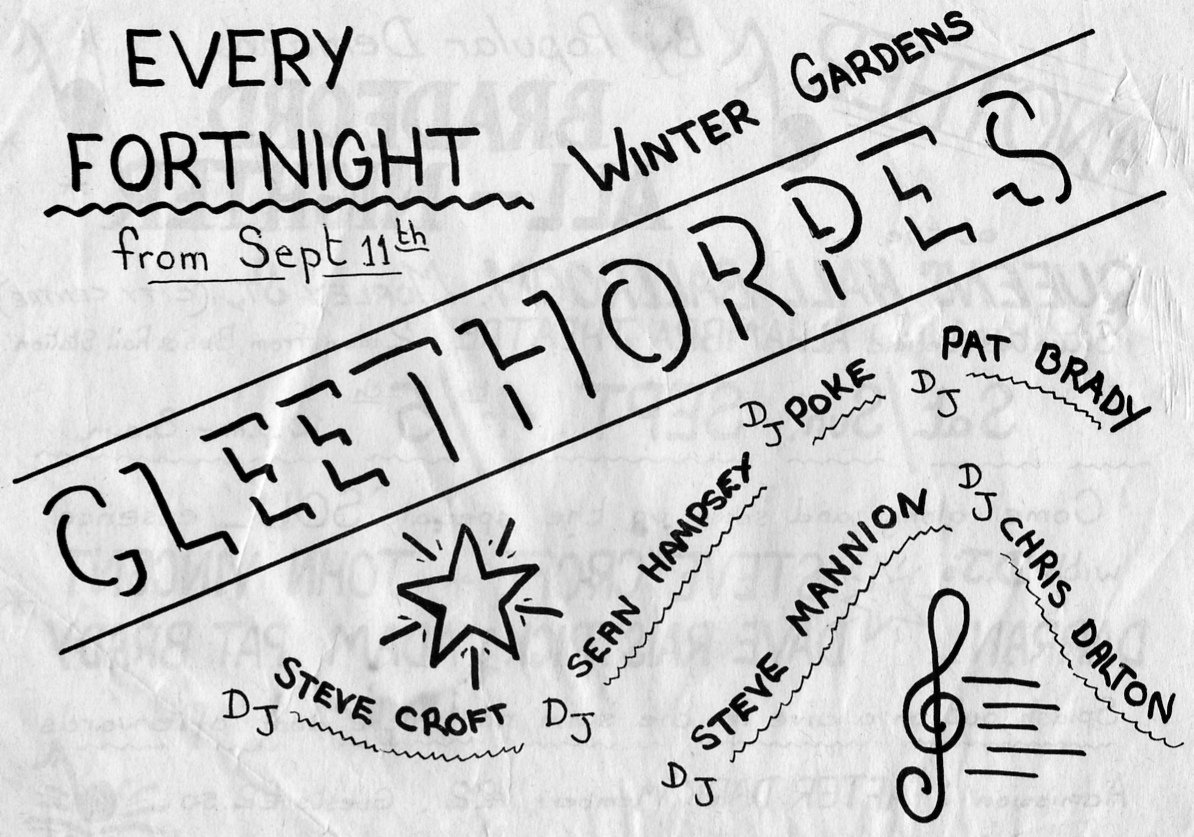 EVERY
FORTNIGHT
from Sept 11th
WINTER GARDENS
CLEETHORPES
DJ STEVE CROFT
DJ SEAN HAMPSEY
DJ POKE
DJ PAT BRADY
DJ STEVE MANNION
DJ CHRIS DALTON